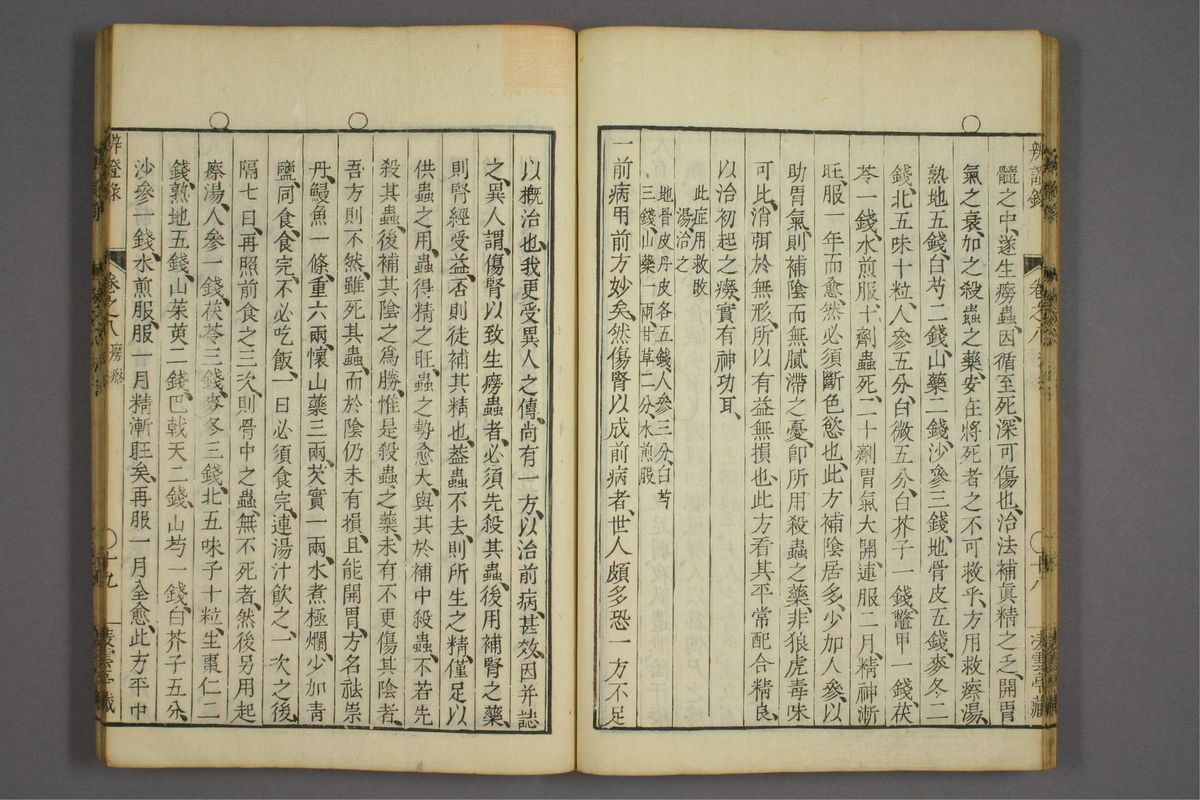 辨證錄
卷之八
十八
髓之中、遂生癆蟲、因循至死、深可傷也、治法補眞精之乏、開胃
氣之衰、加之殺蟲之藥、安在將死者之不可救乎、方用救瘵湯、
熟地五錢、白芍二錢、山藥二錢、沙參三錢、地骨皮五錢、麥冬二
錢、北五味十粒、人參五分、白薇五分、白芥子一錢、鱉甲一錢、茯
苓一錢、水煎服、十劑蟲死、二十劑胃氣大開、連服二月、精神漸
旺、服一年而愈、然必須斷色慾也、此方補陰居多、少加人參、以
助胃氣、則補陰而無膩滯之憂、卽所用殺蟲之藥、非狼虎毒味
可比、消弭於無形、所以有益無損也、此方看其平常配合精良、
以治初起之癆、實有神功耳、
此症用救敗
湯治之
地骨皮丹皮各五錢、人參三分、白芍
三錢、山藥一兩、甘草二分、水煎服
一前病用前方妙矣、然傷腎以成前病者、世人頗多、恐一方不足
以槪治也、我更受異人之傳、尚有一方、以治前病、甚效、因并誌
之、異人謂、傷腎以致生癆蟲者、必須先殺其蟲、後用補腎之藥、
則腎經受益、否則徒補其精也、蓋蟲不去、則所生之精、僅足以
供蟲之用、蟲得精之旺、蟲之勢愈大、與其於補中殺蟲、不若先
殺其蟲、後補其陰之爲勝、惟是殺蟲之藥、未有不更傷其陰者、
吾方則不然、雖死其蟲、而於陰仍未有損、且能開胃、方名祛祟
丹、鰻魚一條、重六兩、懷山藥三兩、芡實一兩、水煮極爛、少加青
鹽、同食、食完、不必吃飯、一日必須食完、連湯汁飮之、一次之後、
隔七日、再照前食之三次、則骨中之蟲、無不死者、然後另用起
瘵湯、人參一錢、茯苓三錢、麥冬三錢、北五味子十粒、生棗仁二
錢、熟地五錢、山茱萸二錢、巴戟天二錢、山芍一錢、白芥子五分、
沙參一錢、水煎服、服一月、精漸旺矣、再服一月全愈、此方平中
辨證錄
卷之八
癆瘵
十九